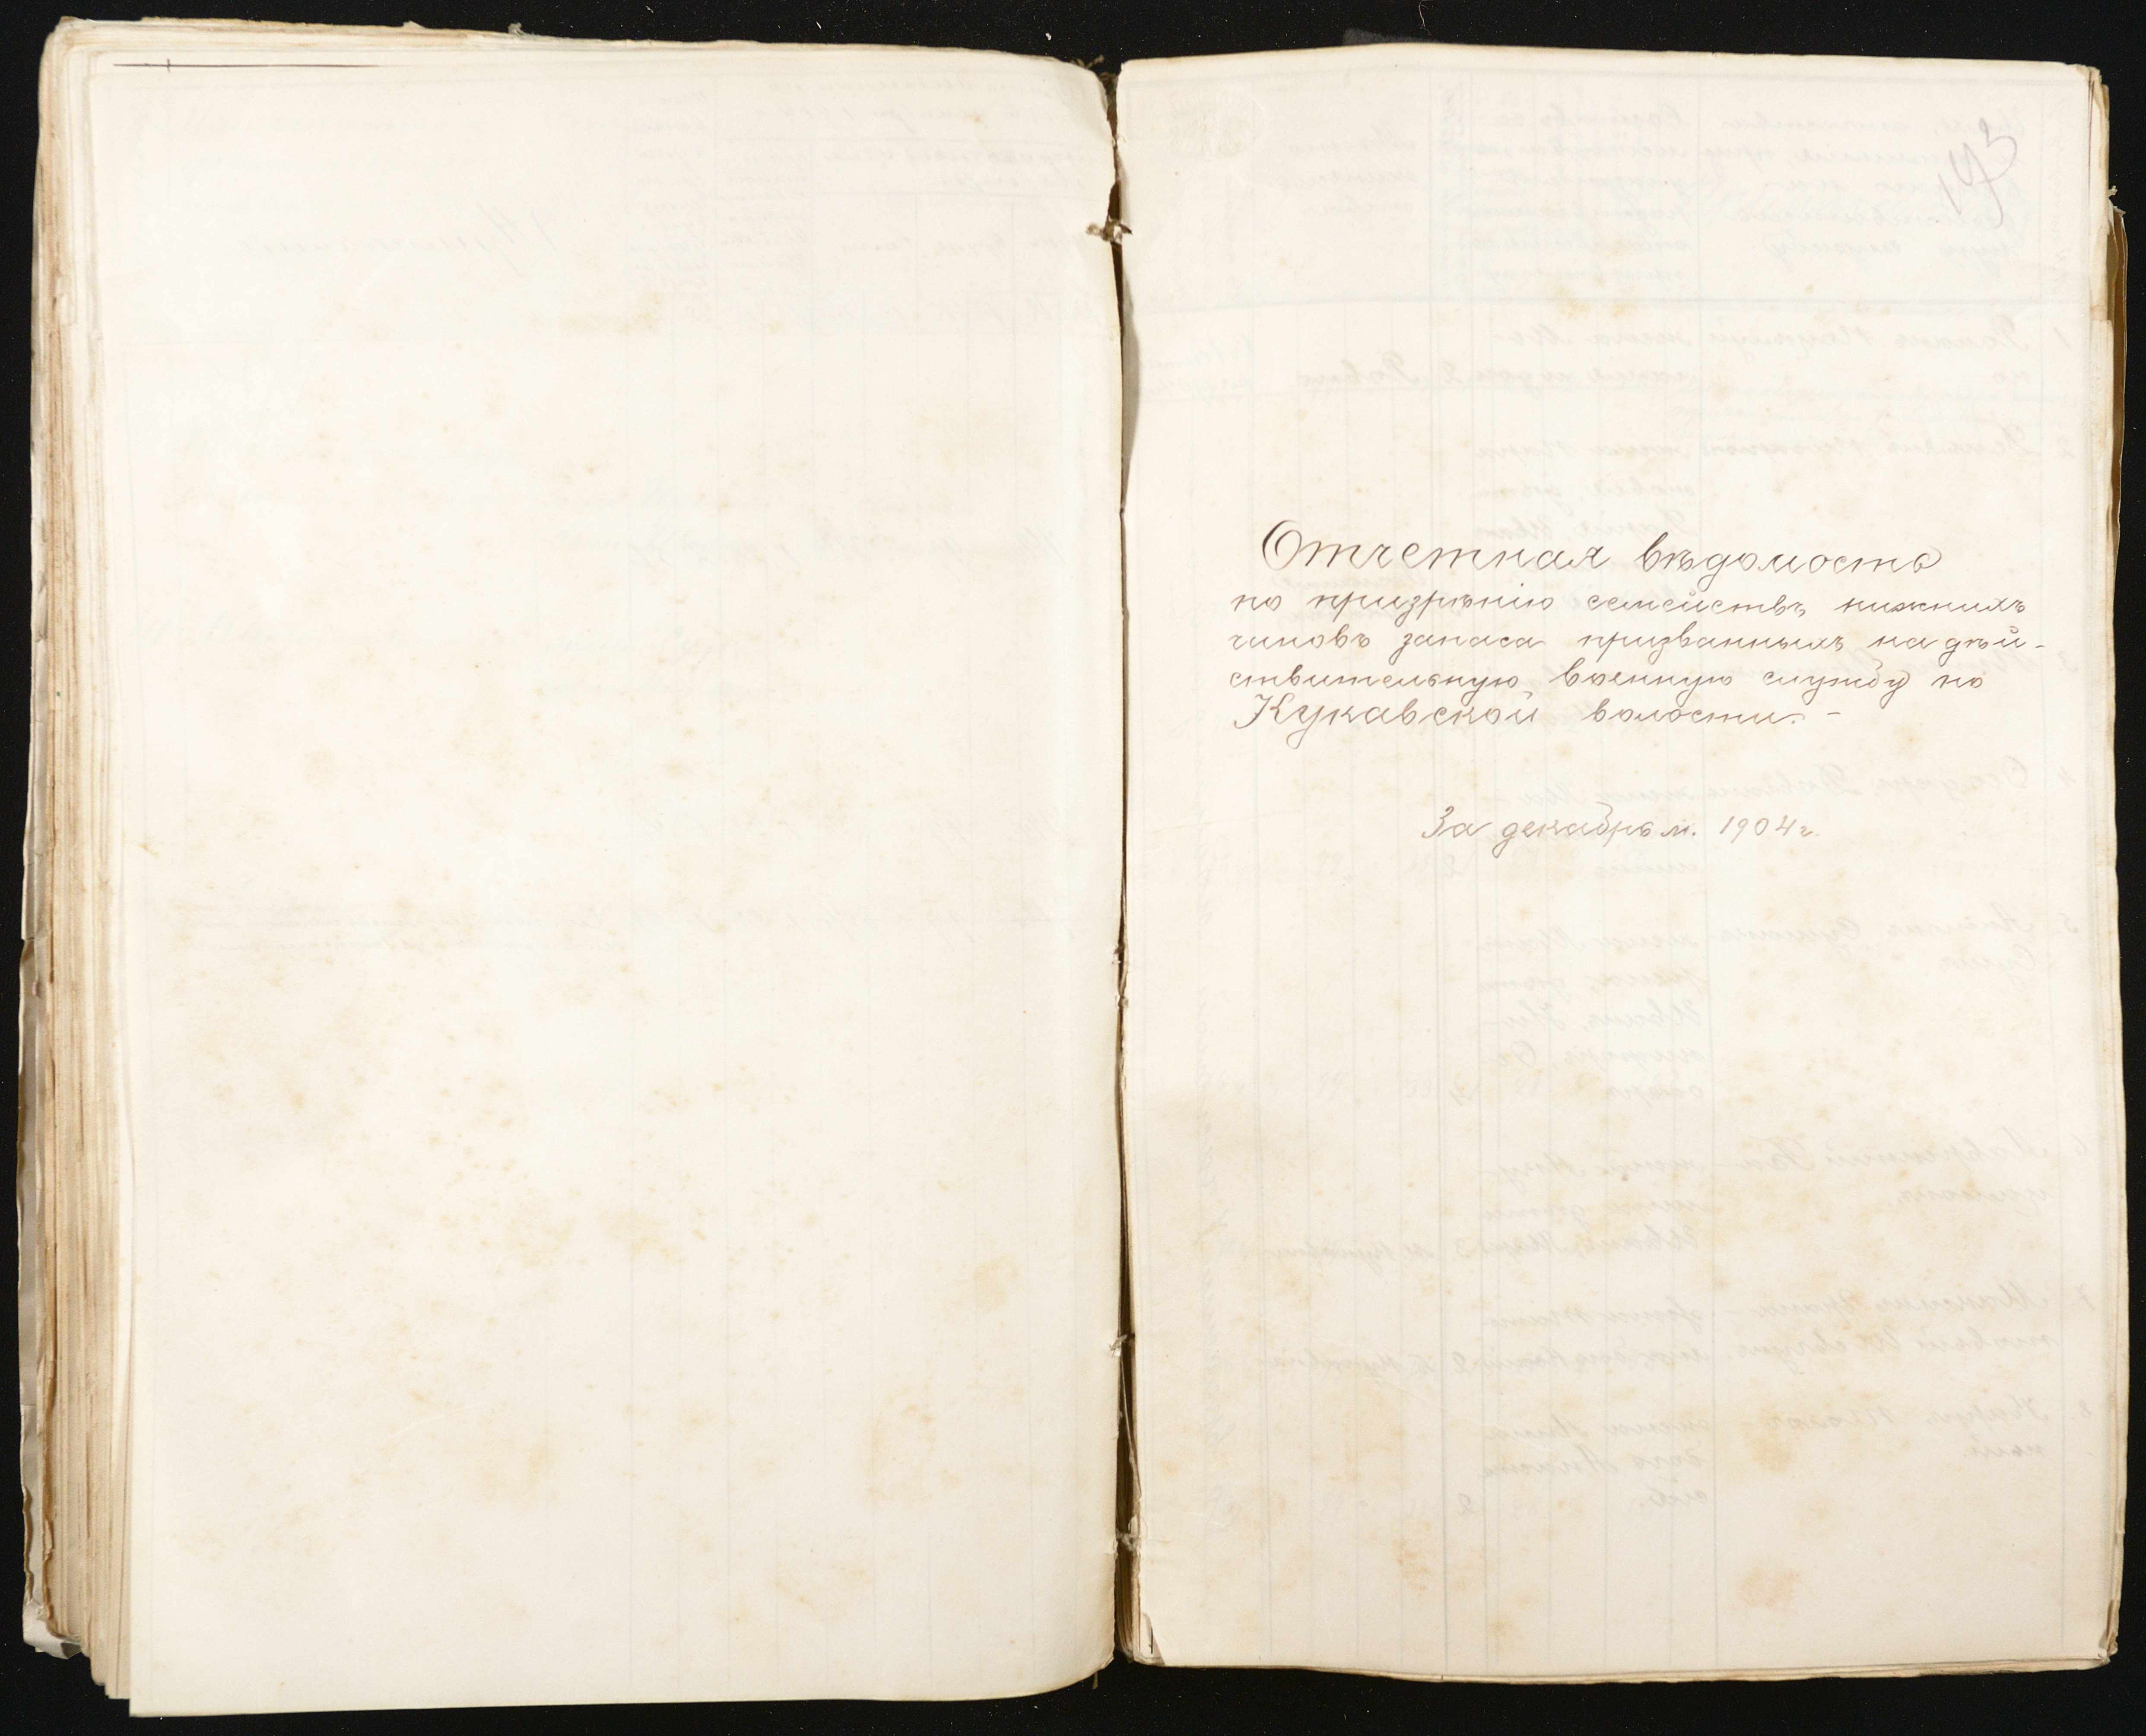 173
Отчетная вѣдомость
по призрѣнію семействъ нижнихъ
чиновъ запаса призванныхъ на дѣй-
ствительную военную службу по
Кукавской волости. -
За декабрь м. 1904 г.